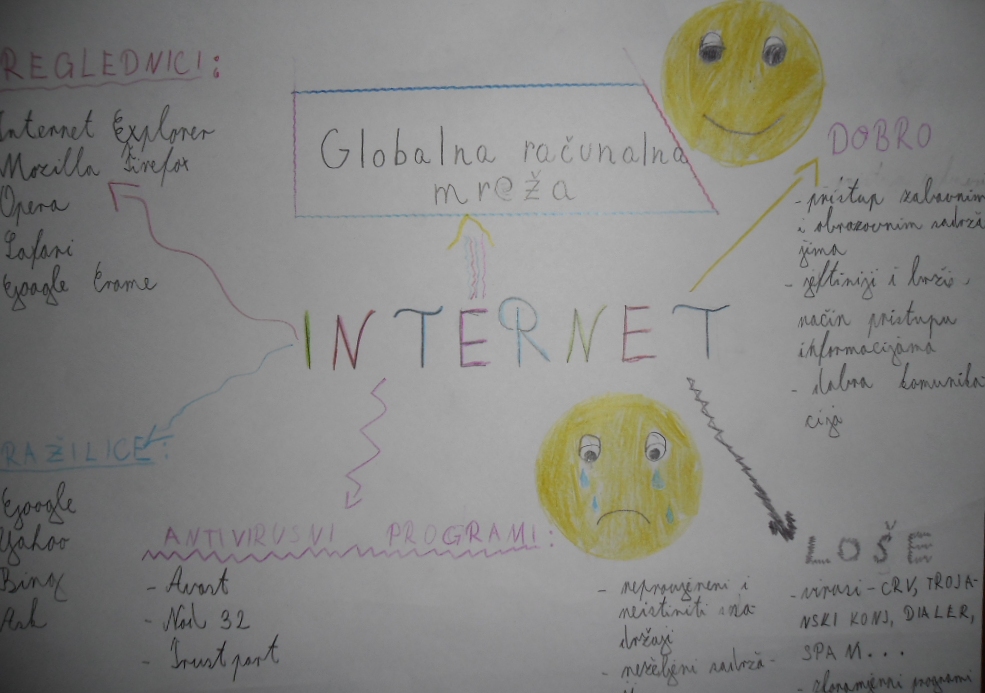 REGLEDNICI:
Internet Explorer
Mozilla Firefox
Opera
Safari
Google Crome
Globalna računalna
mr@ža
DOBRO
- pristup zabavnim
i obrazovnim sadrža
jima
- jeftiniji i brži
način pristupa
informacijama
- dobra komunika
cija
INTERNET
RAŽILICE:
Google
Yahoo
Bing
Ask
ANTIVIRUSNI PROGRAMI:
- Avast
- Nod 32
- Trustport
LOŠE
- neprovjereni i
neistiniti sa
držaji
- neželjeni sadrža-
- virusi - CRV, TROJA-
NSKI KONJ, DIALER,
SPAM...
- zlonamjerni programi